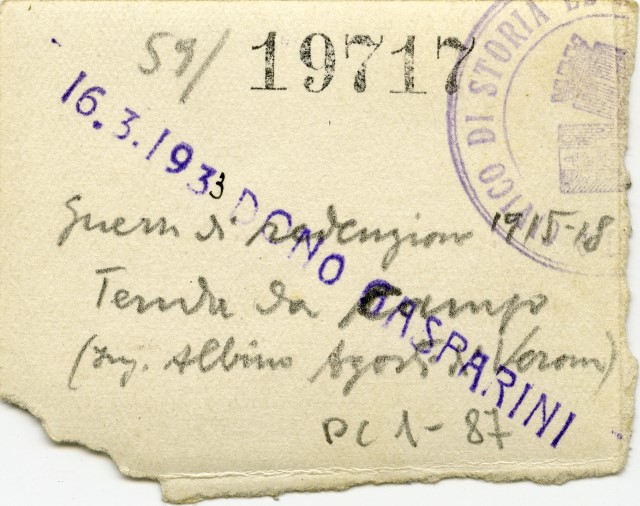 59/ 19717
VICO DI STORIA
16.3.1933 DONO GASPARINI
Guerra di redenzione 1915-18
Tenda da campo
(Ing. Albino Agosti di Verona)
PC 1-87